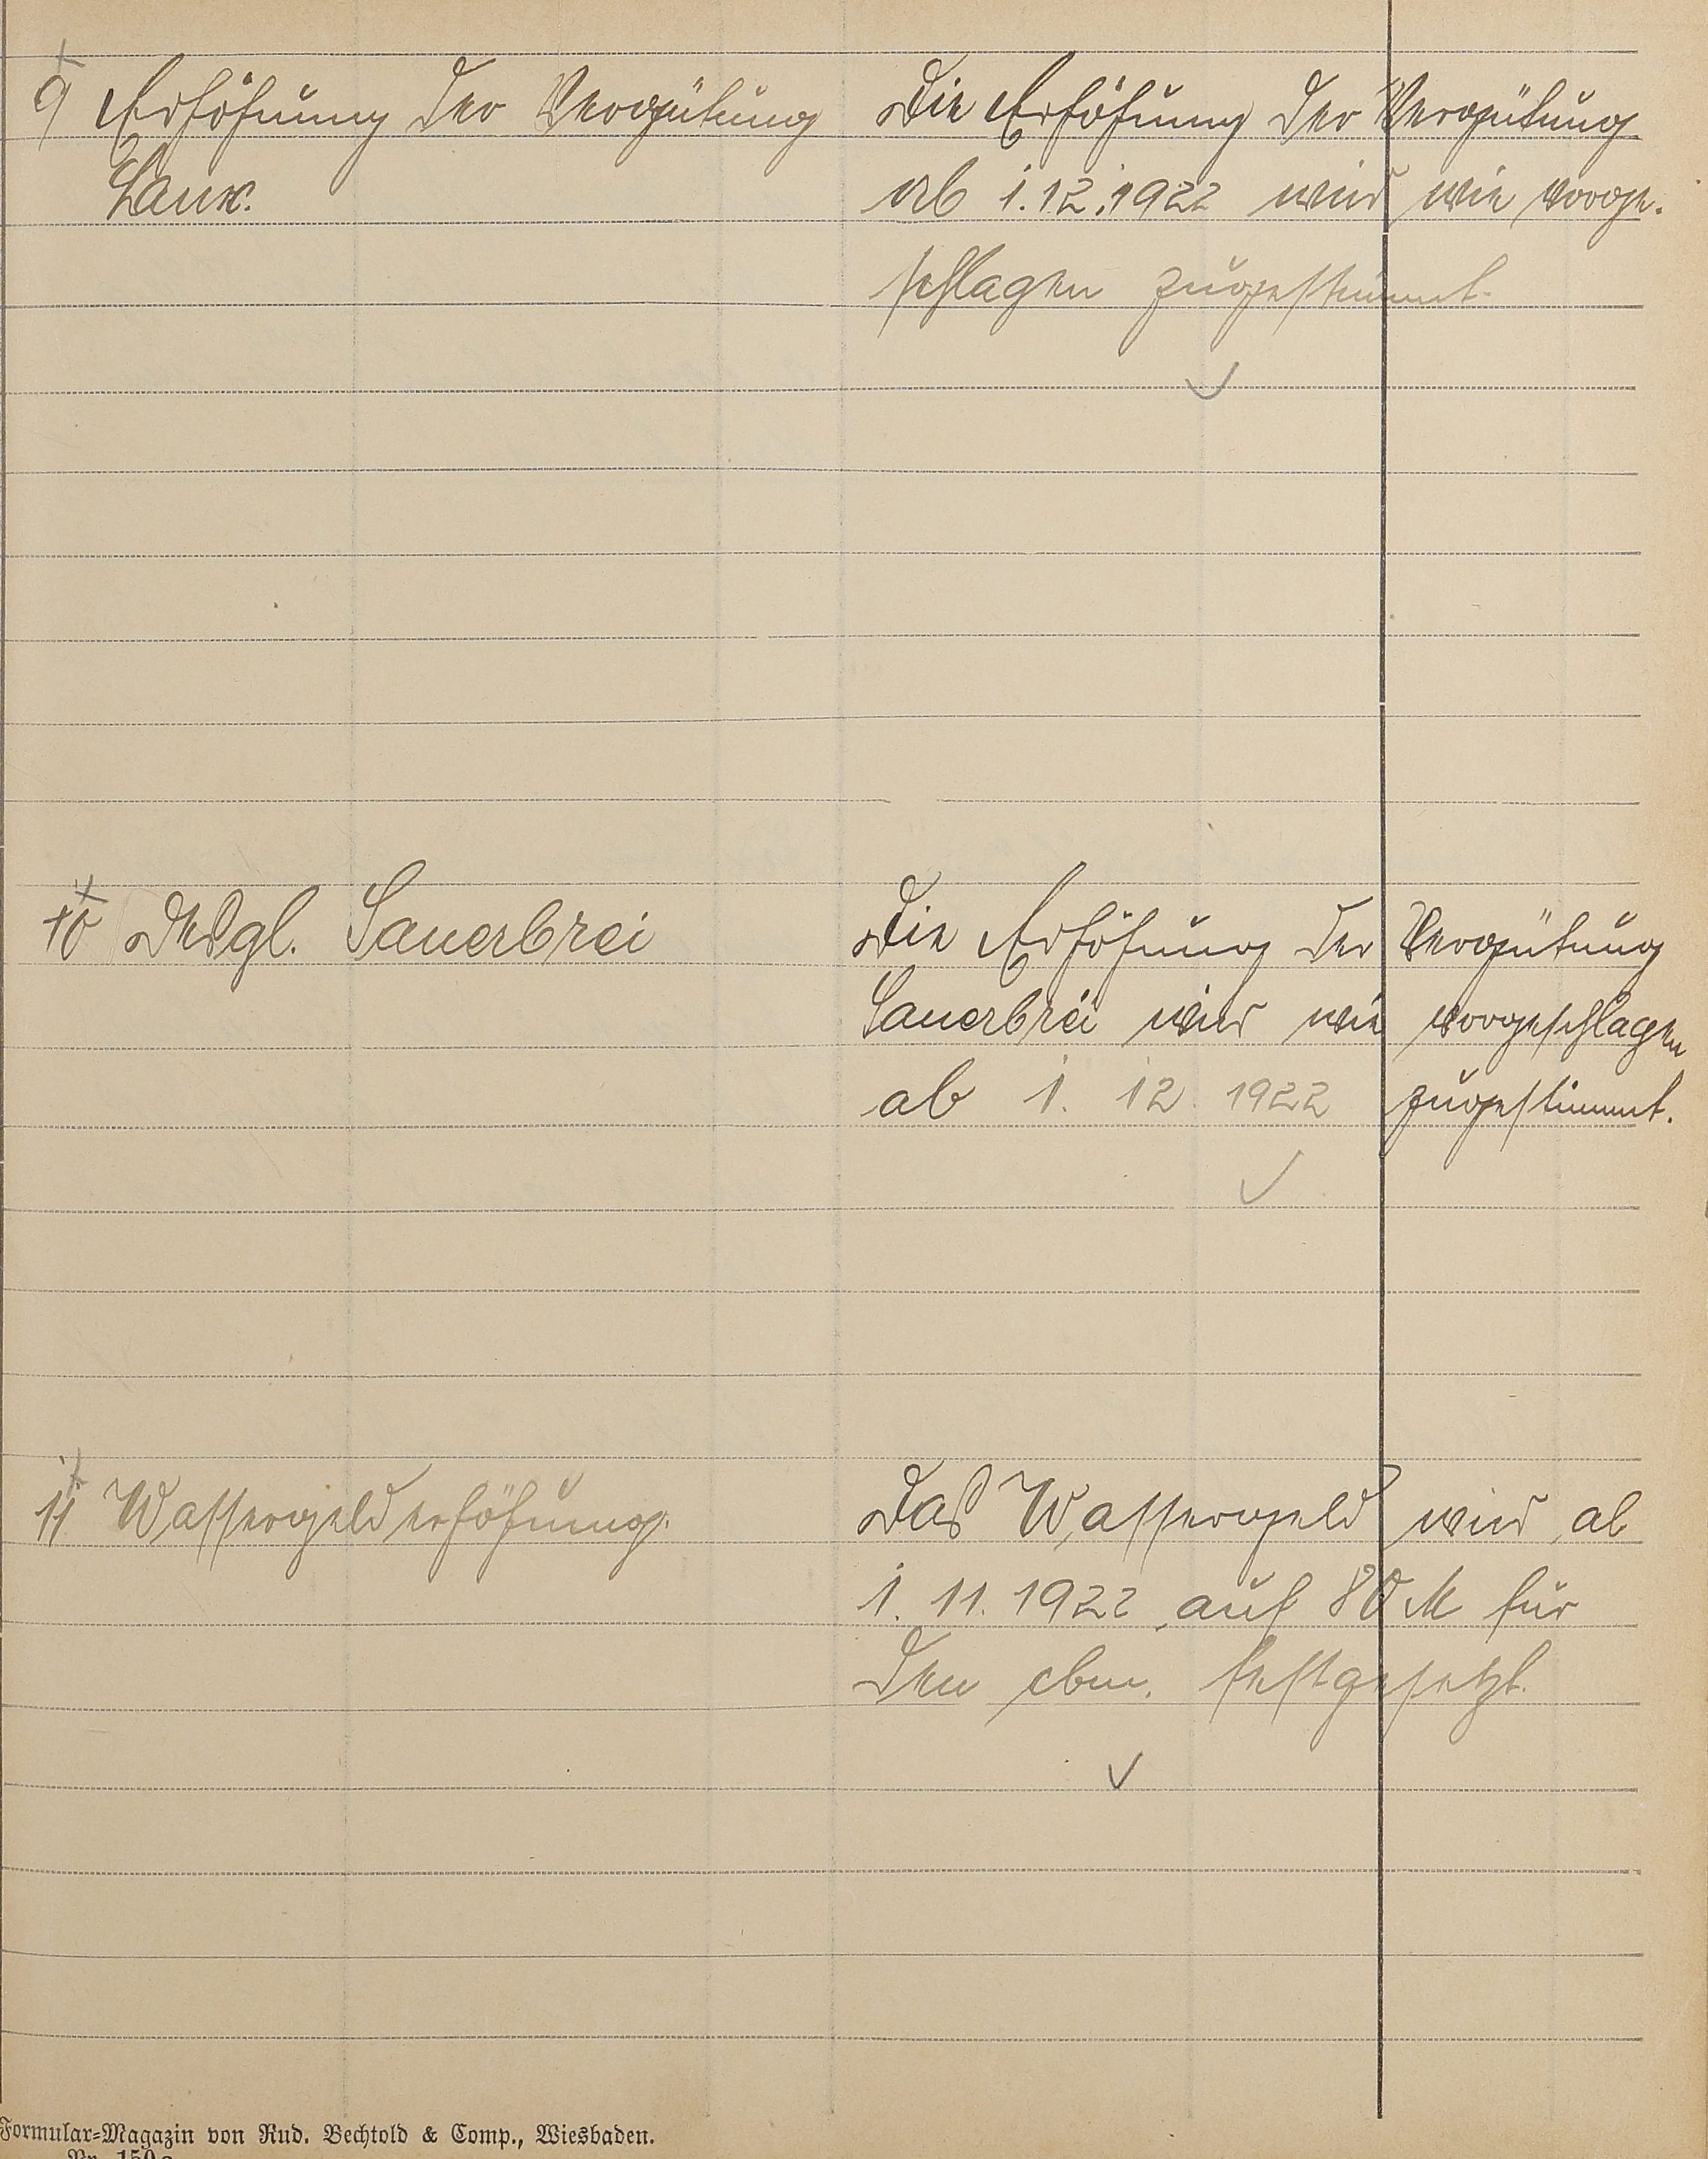 9 Erhöhung der Vergütung
Laux.
Die Erhöhung der Vergütung
ab 1.12.1922 wird wie vorge-
schlagen zugestimmt.
10 Desgl. Sauerbrei
Die Erhöhung der Vergütung
Sauerbrei wird wie vorgeschlagen
ab 1. 12. 1922 zugestimmt.
11 Wassergelderhöhung.
Das Wassergeld wird ab
1. 11. 1922 auf 80 M für
den cbm. festgesetzt.
Formular-Magazin von Rud. Bechtold & Comp., Wiesbaden.